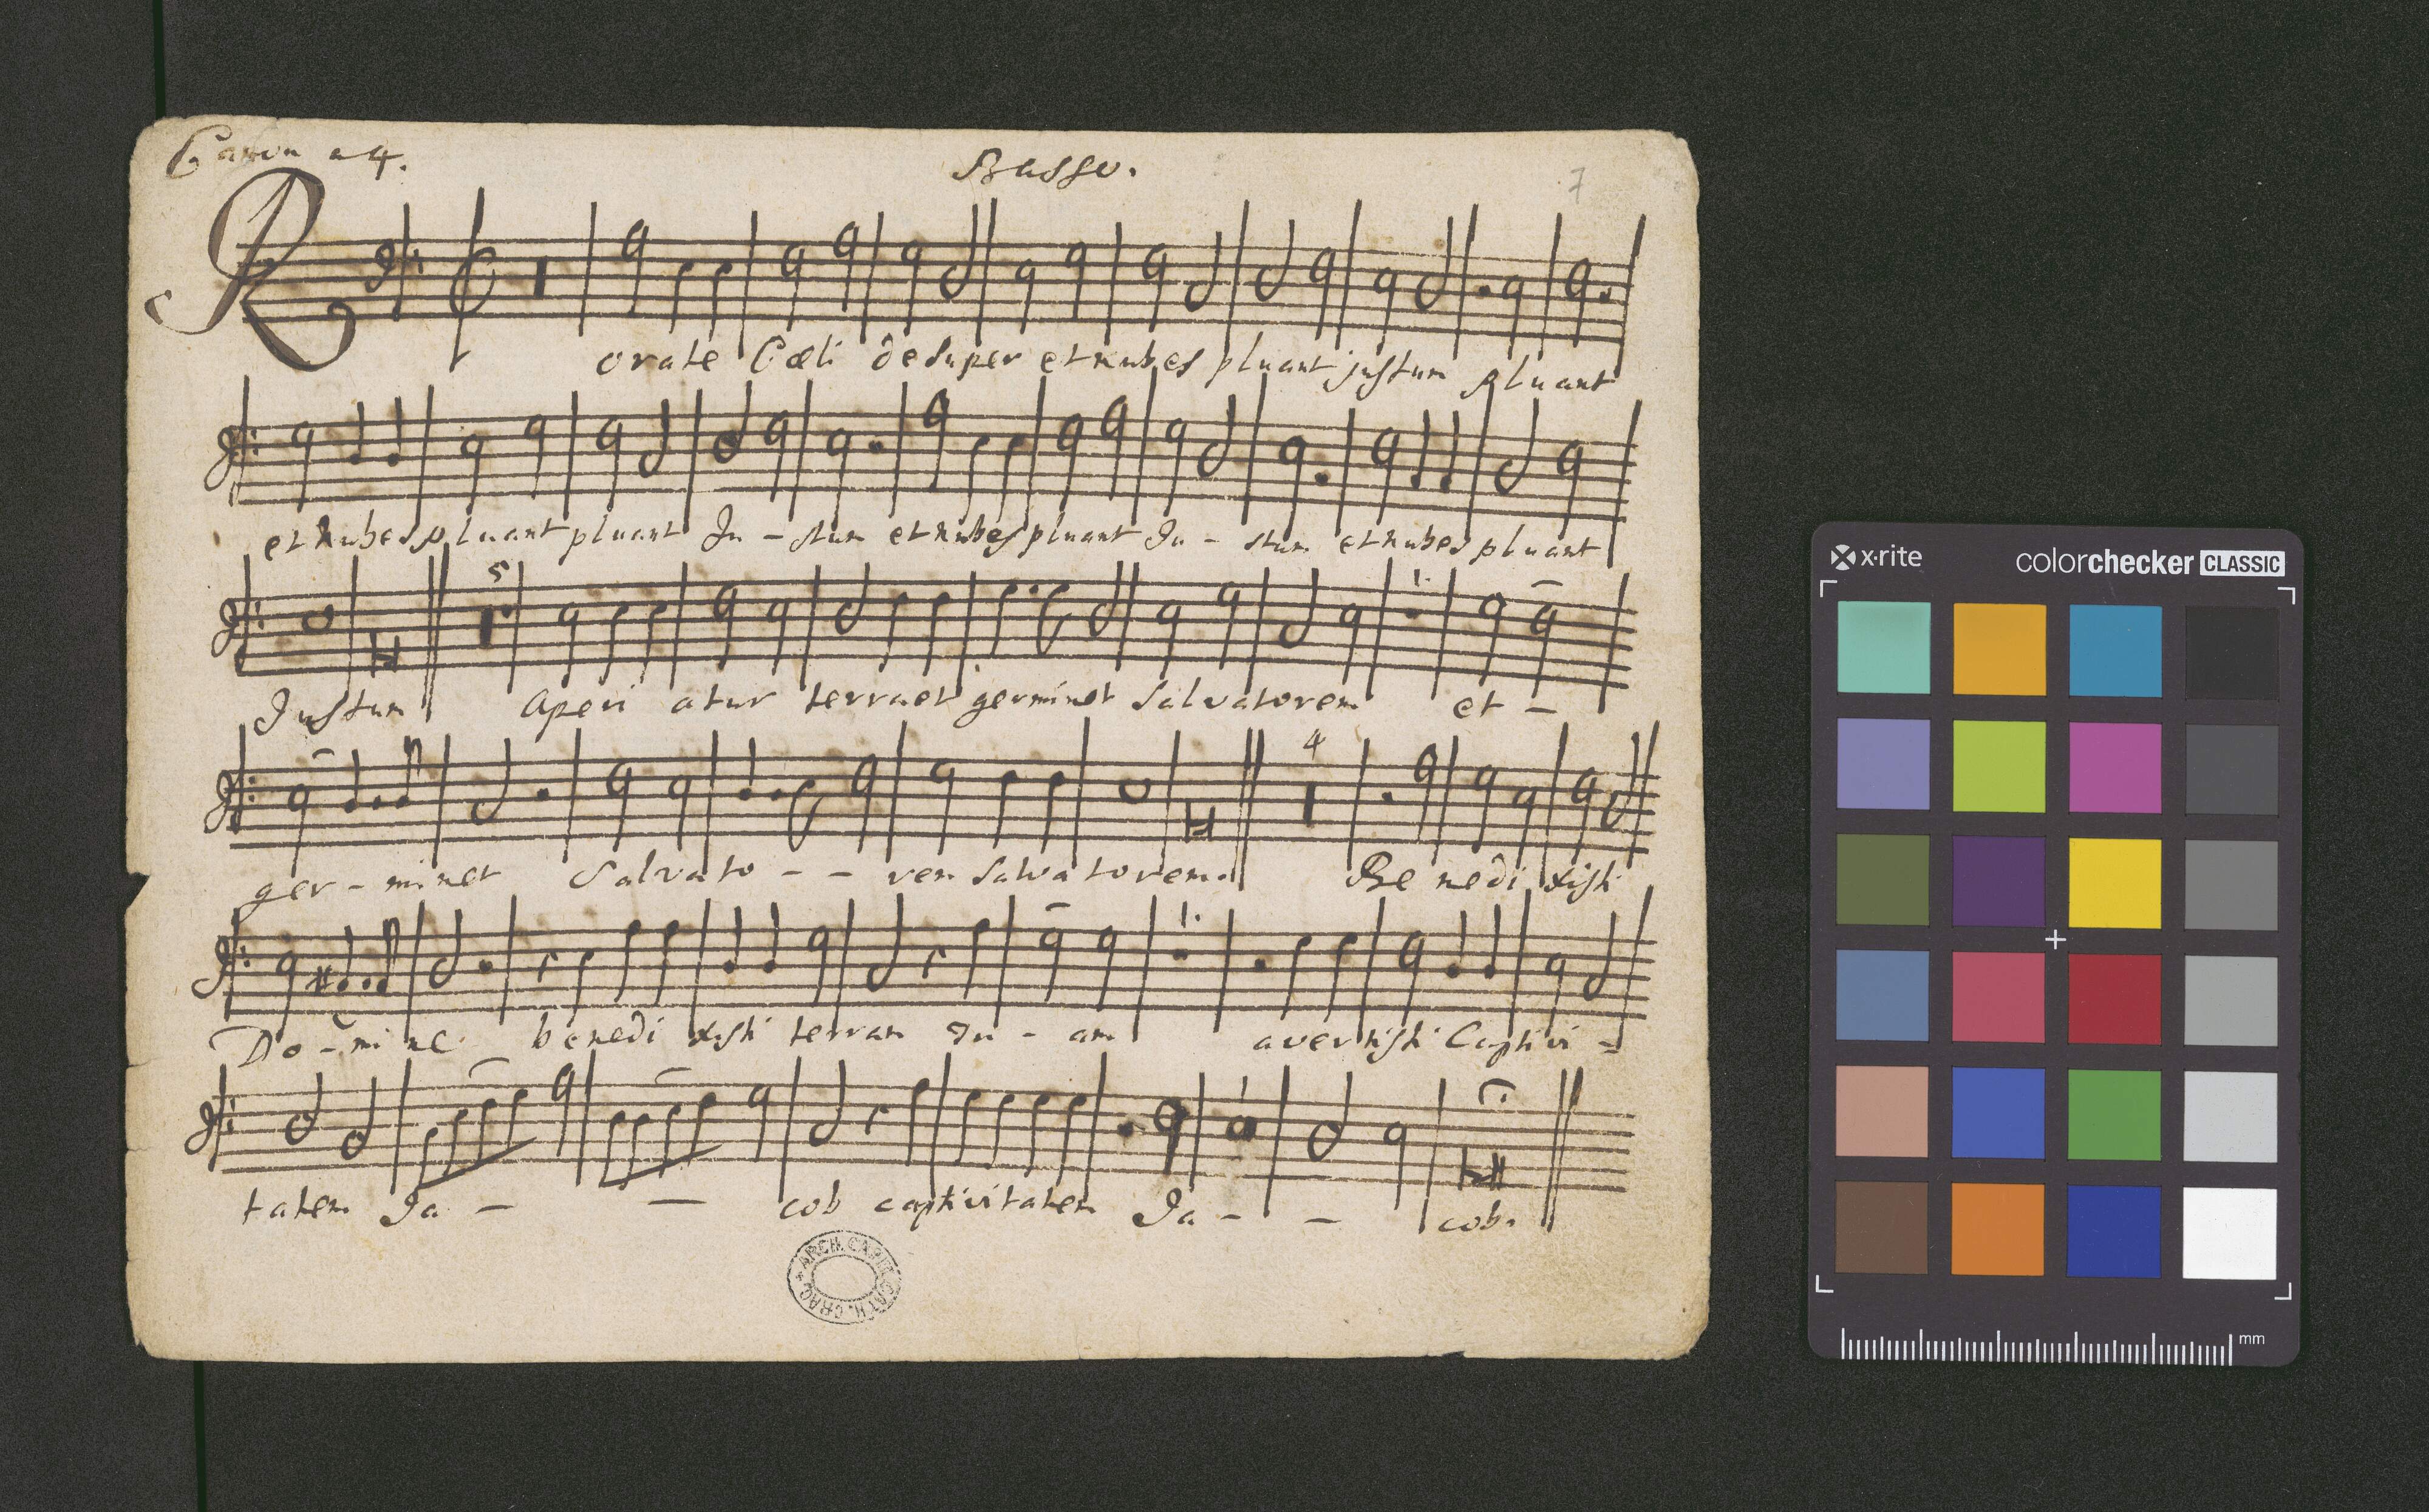 Canon a 4. Basso. 7
Rorate Cæli desuper et nubes pluant justum pluant
et nubes pluant pluant Ju - stum et nubes pluant Ju - stum et nubes pluant
5
Justum Aperi atur terra et germinet Salvatorem et -
4
ger - minet Salvato - - rem salvatorem. Benedixisti
Do - mine benedixisti terram Tu - am avertisti Captivi -
tatem Ja - - cob captivitatem Ja - - cob.
ARCH. CAPIT. CATH. CRAC.
x·rite colorchecker CLASSIC
mm